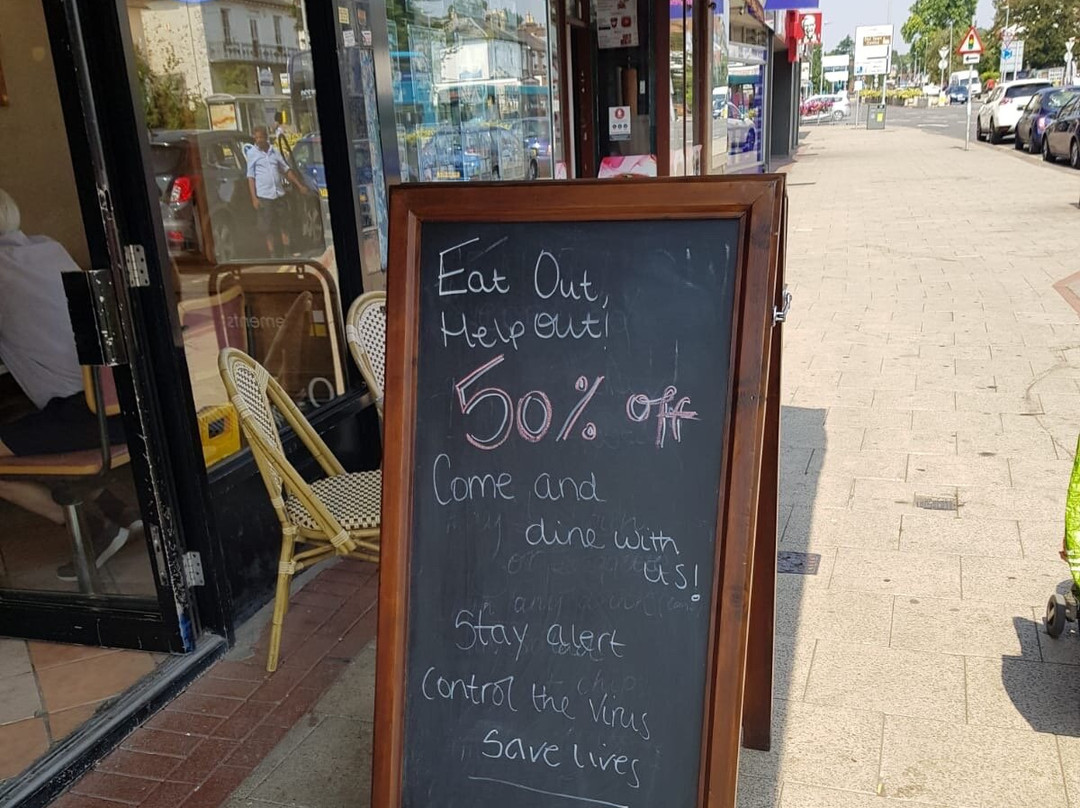 Eat Out,
Help Out!
50% off
Come and
dine with
us!
Stay alert
Control the Virus
Save lives
KFC